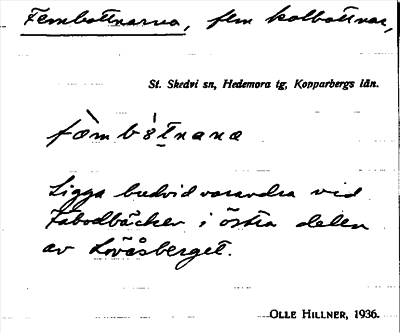 Fembottnarna, fem kolbottnar,
St. Skedvi sn, Hedemora tg, Kopparbergs län.
fæ̀m bótnana
Ligga bredvid varandra vid
Fäbodbäcken i östra delen
av Lövåsberget.
OLLE HILLNER, 1936.